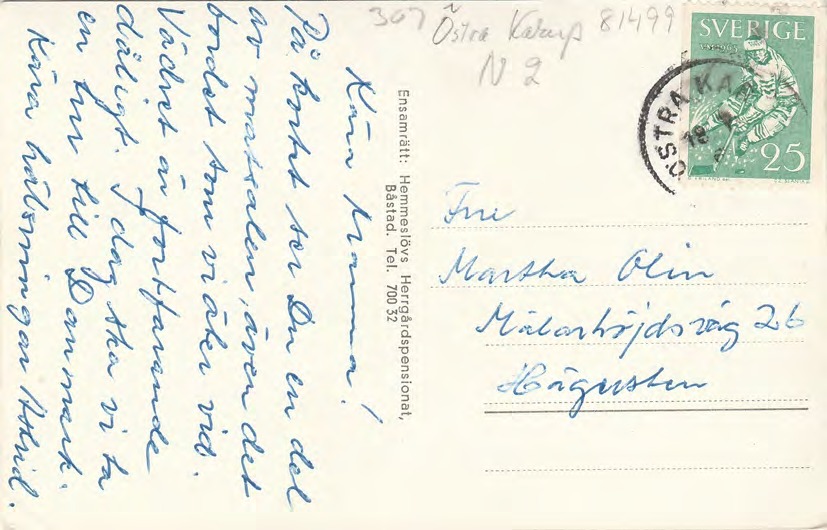 307 Östra Karup 81499
N 2
SVERIGE
25
ÖSTRA KA
18
Kära mamma!
På kortet ser Du en del
av matsalen, även det
bordet som vi äter vid.
Vädret är fortfarande
dåligt. I dag ska vi ta
en tur till Danmark.
Kära hälsningar Astrid.
Ensamrätt: Hemmeslövs Herrgårdspensionat,
Båstad. Tel. 700 32
Fru
Martha Olin
Mälarhöjdsväg 26
Hägersten